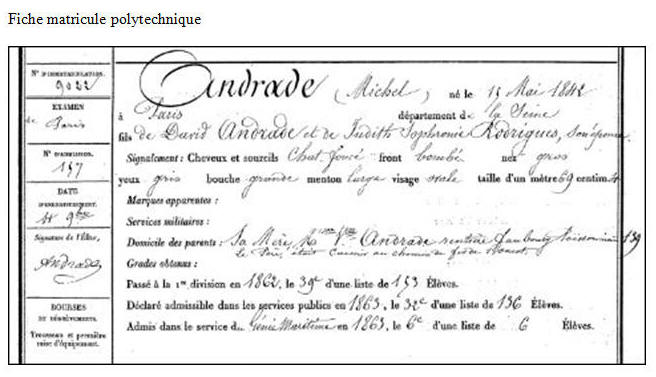 Fiche matricule polytechnique
N° D'IMMATRICULATION.
9022
EXAMEN
de Paris
N° D'ADMISSION.
157
DATE
D'ENREGISTREMENT.
4 9bre
Signature de l'Élève,
Andrade
BOURSES
ET DÉGRÈVEMENTS.
Trousseau et première
mise d'équipement.
Andrade (Michel) né le 15 Mai 1842
à Paris département de la Seine
fils de David Andrade et de Judith Sophronie Rodrigues, son épouse
Signalement : Cheveux et sourcils Chat. foncé front bombé nez gros
yeux gris bouche grande menton large visage ovale taille d'un mètre 69 centim. 4
Marques apparentes :
Services militaires :
Domicile des parents : Sa Mère, Mme Vve Andrade rentière Faubourg Poissonnière 139
le Père, était Caissier au chemin de fer de l'Ouest.
Grades obtenus :
Passé à la 1re division en 1862, le 39e d'une liste de 153 Élèves.
Déclaré admissible dans les services publics en 1863, le 32e d'une liste de 136 Élèves.
Admis dans le service du Génie Maritime en 1863, le 6e d'une liste de 6 Élèves.